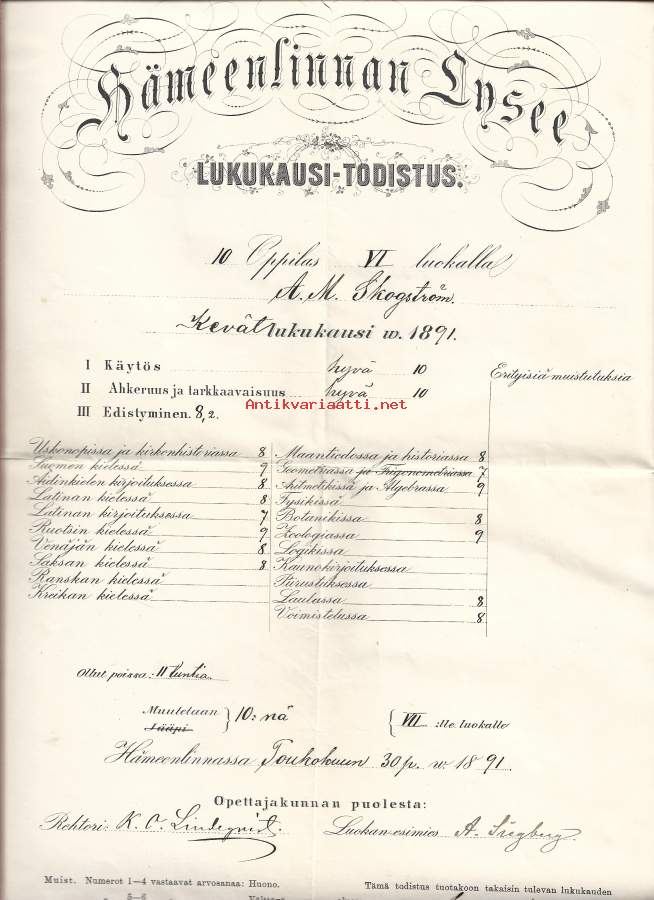 Hämeenlinnan Lysee
LUKUKAUSI-TODISTUS.
10 Oppilas VI luokalla
A. M. Skogström.
Kevätlukukausi w. 1891.
I Käytös hyvä 10
II Ahkeruus ja tarkkaavaisuus hyvä 10
III Edistyminen. 8,2.
Erityisiä muistutuksia
Antikvariaatti.net
Uskonopissa ja kirkonhistoriassa 8
Suomen kielessä 9
Äidinkielen kirjoituksessa 8
Latinan kielessä 8
Latinan kirjoituksessa 7
Ruotsin kielessä 9
Venäjän kielessä 8
Saksan kielessä 8
Ranskan kielessä
Kreikan kielessä
Maantiedossa ja historiassa 8
Geometriassa ja Trigonometriassa 7
Aritmetikissa ja Algebrassa 9
Fysikissä
Botanikissa 8
Zoologiassa 9
Logikissa
Kaunokirjoituksessa
Piirustuksessa
Laulussa 8
Voimistelussa 8
Ollut poissa: 11 tuntia.
Muutetaan
Jääpi
10: nä
VII :lle luokalle
Hämeenlinnassa Toukokuun 30 p. w. 1891.
Opettajakunnan puolesta:
Rehtori: K. O. Lindeqvist.
Luokan esimies A.
Muist. Numerot 1—4 vastaavat arvosanaa: Huono.
5—6
Tämä todistus tuotakoon takaisin tulevan lukukauden